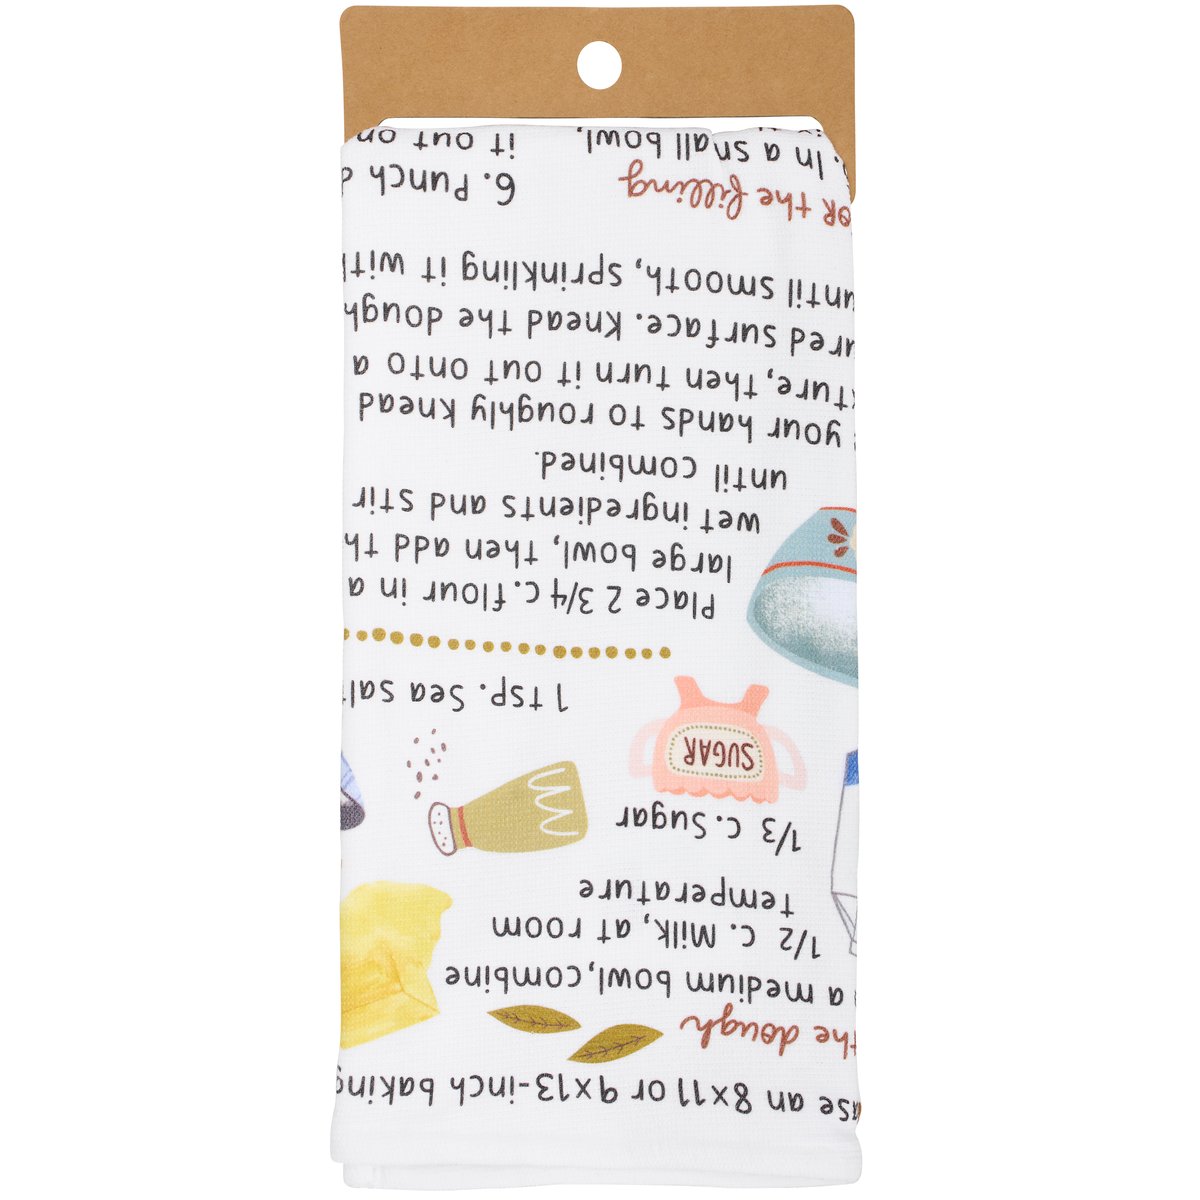 ase an 8x11 or 9x13-inch baking
the dough
a medium bowl, combine
1/2 c. Milk, at room
temperature
1/3 c. Sugar
SUGAR
1 tsp. Sea salt
Place 2 3/4 c. flour in a
large bowl, then add th
wet ingredients and stir
until combined.
your hands to roughly knead
xture, then turn it out onto a
ured surface. Knead the dough
until smooth, sprinkling it with
OR the filling
. In a small bowl,
6. Punch d
it out on